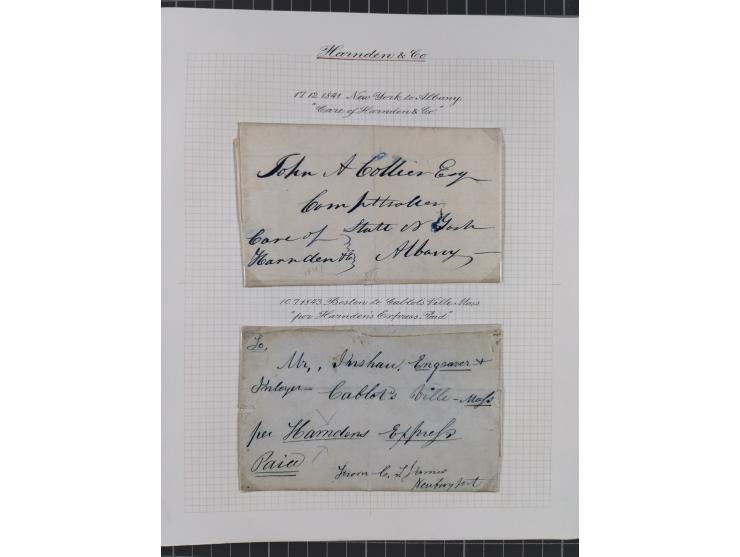 Harnden & Co
17.12.1841 New York to Albany
"Care of Harnden & Co"
John A Collier Esq
Comptroller
State N York
Care of
Harnden & Co
Albany
10.7.1843 Boston to Cablots Ville Mass
"per Harnden's Express Paid"
To,
Mr,, Engraver &
Cablot's Ville - Mass
per Harndens Express
Paid
From C.
Newburyport